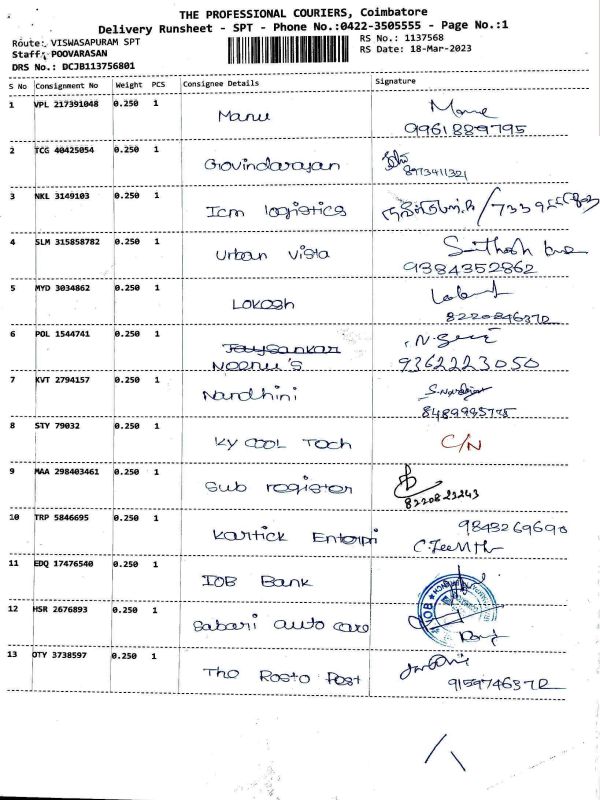 THE PROFESSIONAL COURIERS, Coimbatore
Delivery Runsheet - SPT - Phone No.:0422-3505555 - Page No.:1
Route: VISWASAPURAM SPT RS No.: 1137568
Staff: POOVARASAN RS Date: 18-Mar-2023
DRS No.: DCJB113756801
S No Consignment No Weight PCS Consignee Details Signature
1 VPL 217391048 0.250 1 Manu
9961889795
2 TCG 40425054 0.250 1 Govindarajan
8973411321
3 NKL 3149103 0.250 1 Icm logistics
4 SLM 315858782 0.250 1 Urban Vista
9384352862
5 MYD 3034862 0.250 1 Lokesh
8220846372
6 POL 1544741 0.250 1 Jaysankar
Neeru's 9362223050
7 KVT 2794157 0.250 1 Nandhini
8489995775
8 STY 79032 0.250 1 Ky COOL Tech C/N
9 MAA 298403461 0.250 1 Sub register
8220822243
10 TRP 5846695 0.250 1 Kartick Enterpri 9843269690
11 EDQ 17476540 0.250 1 IOB Bank
12 HSR 2676893 0.250 1 Sabari auto care
IOB
13 OTY 3738597 0.250 1 The Rosto Post
9159746372